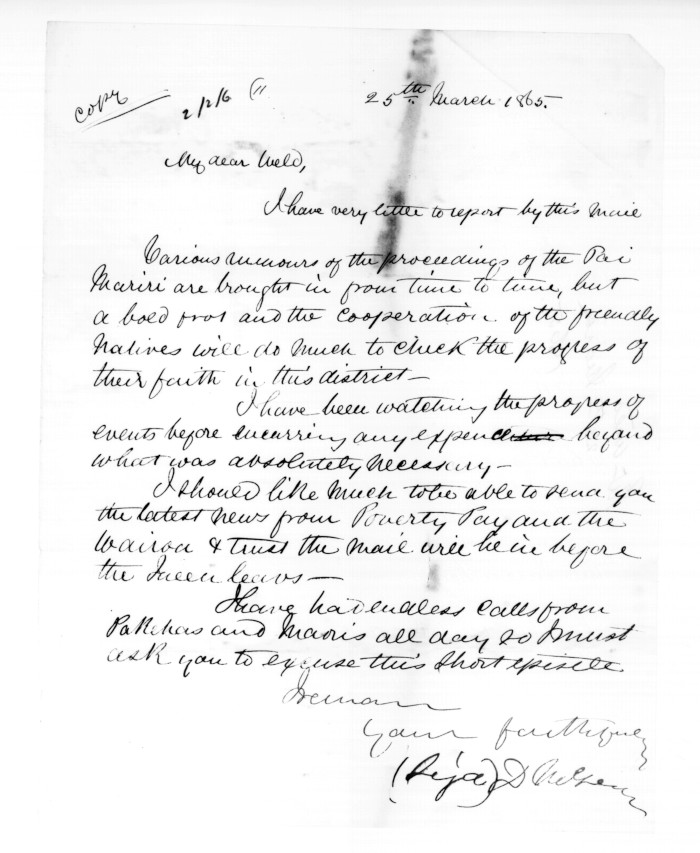 copy
2/2/6 (11
25th March 1865.
My dear Weld,
I have very little to report by this Mail
Various rumours of the proceedings of the Pai
Mariri are brought in from time to time, but
a bold front and the cooperation of the friendly
Natives will do much to check the progress of
their faith in this district—
I have been watching the progress of
events before encurring any expence beyond
what was absolutely necessary—
I should like much to be able to send you
the latest news from Poverty Bay and the
Wairoa & trust the mail will be in before
the Queen leaves—
I have had endless calls from
Pakehas and Maoris all day so I must
ask you to excuse this short epistle
I remain
Yours faithfully
(Signd) D McLean